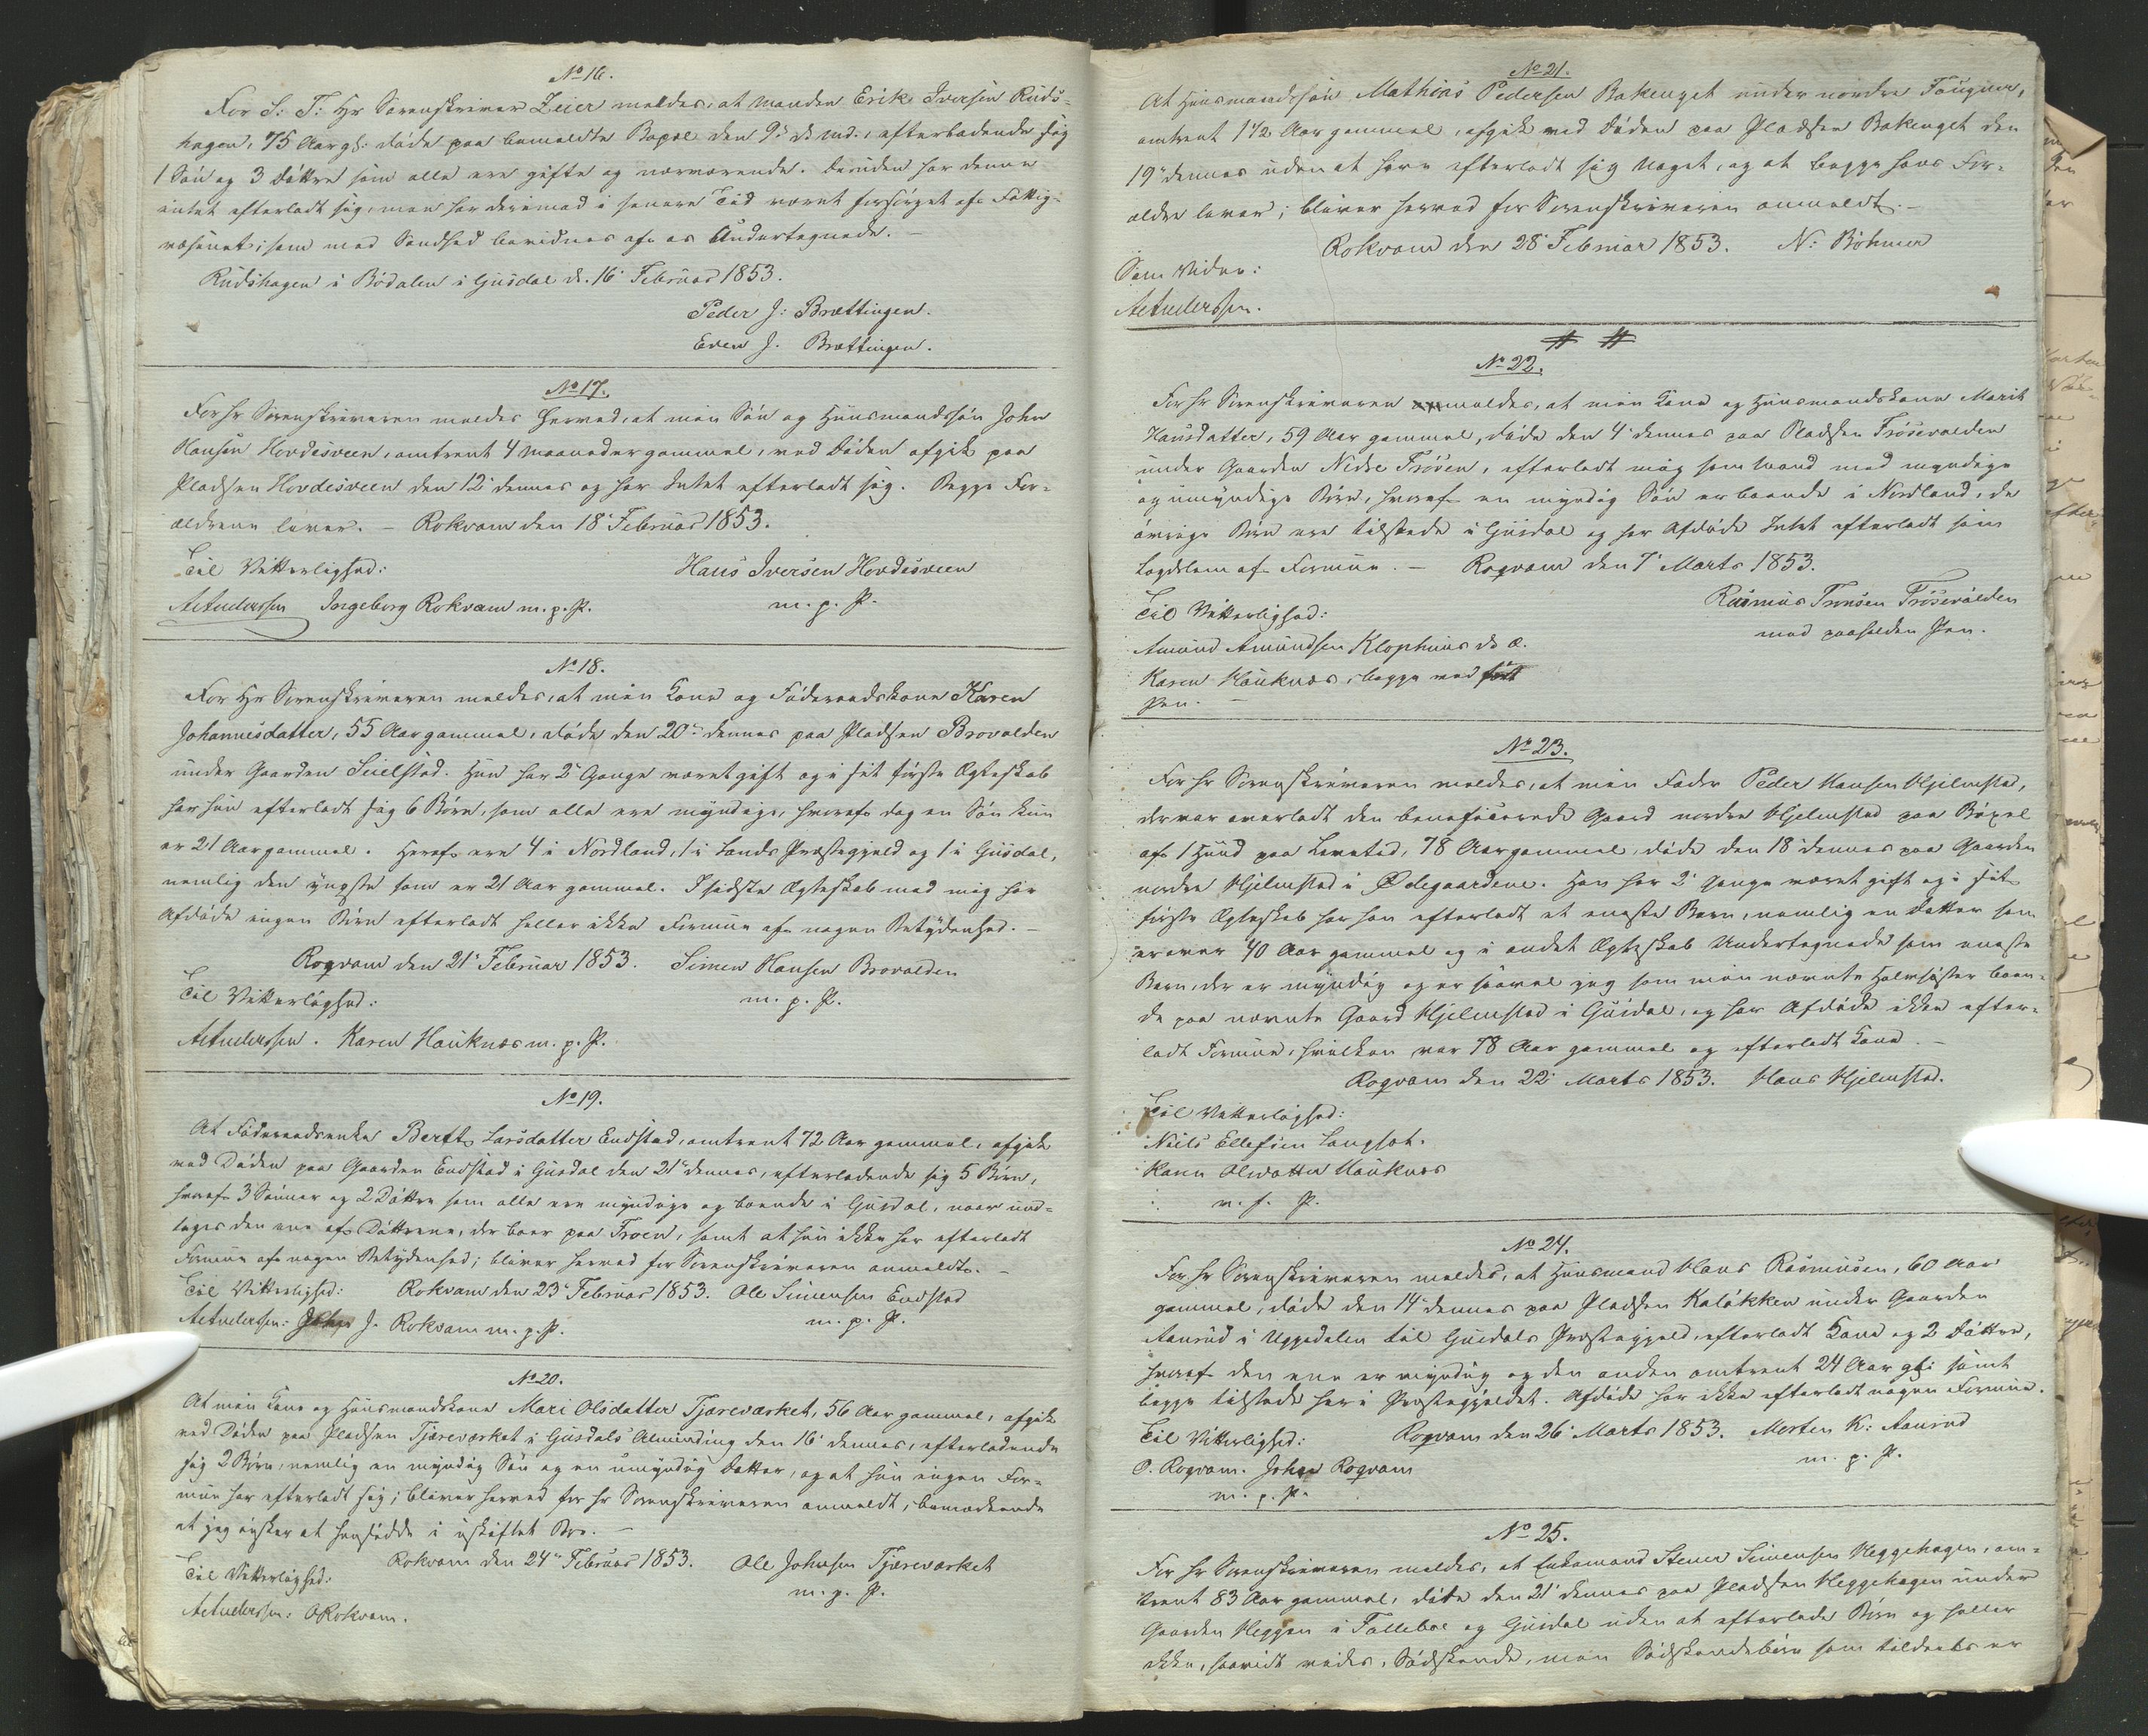 No 16.
For S: T: Hr Sorenskriver Zeier meldes, at Manden Erik Iversen Ruds-
hagen, 75 Aar gl: døde paa bemeldte Bopæl den 9de ds Md., efterladende sig
1 Søn og 3 Døttre som alle ere gifte og nærværende. Desuden har denne
intet efterladt sig, men har derimod i senere Tid været forsørget af Fattig-
væsenet; som med Sandhed bevidnes af os Undertegnede. –
Rudshagen i Bødalen i Gusdal d. 16' Februar 1853.
Peder J: Brættingen.
Even J. Brættingen.
No 17.
For Hr Sorenskriveren meldes herved, at min Søn og Huusmandssøn John
Hansen Hovdesveen, omtrent 4 Maaneder gammel, ved Døden afgik paa
Pladsen Hovdesveen den 12' dennes og har Intet efterladt sig. Begge For-
ældrene lever. – Rokvam den 18' Februar 1853.
Til Vitterlighed: Hans Iversen Hovdesveen
AAnderssen Ingeborg Rokvam m. p. P. m. p. P.
No 18.
For Hr Sorenskriveren meldes, at min Kone og Føderaadskone Karen
Johannesdatter, 55 Aar gammel, døde den 20de dennes paa Pladsen Brovolden
under Gaarden Suelstad. Hun har 2 Gange været gift og i sit første Ægteskab
har hun efterladt sig 6 Børn, som alle ere myndige, hvoraf dog en Søn kun
er 21 Aar gammel. Heraf ere 4 i Nordland, 1 i Lands Præstegjeld og 1 i Gusdal,
nemlig den yngste som er 21 Aar gammel. I sidste Ægteskab med mig har
Afdøde ingen Børn efterladt heller ikke Formue af nogen Betydenhed. –
Roqvam den 21' Februar 1853. Simen Hansen Brovolden
Til Vitterlighed: m. p. P.
AAnderssen. Karen Hauknæs m. p. P.
No 19.
At Føderaadsenke Berthe Larsdatter Endstad, omtrent 72 Aar gammel, afgik
ved Døden paa Gaarden Endstad i Gusdal den 21' dennes, efterladende sig 5 Børn,
hvoraf 3 Sønner og 2 Døttre som alle ere myndige og boende i Gusdal, naar und-
tages den ene af Døttrene, der boer paa Troen, samt at hun ikke har efterladt
Formue af nogen Betydenhed; bliver herved for Sorenskriveren anmeldt. –
Til Vitterlighed: Rokvam den 23' Februar 1853. Ole Simensen Endstad
AAnderssen: Johan J. Rokvam m. p. P. m. p. P.
No 20.
At min Kone og Huusmandskone Mari Olsdatter Tjæreværket, 56 Aar gammel, afgik
ved Døden paa Pladsen Tjæreværket i Gusdals Alminding den 16' dennes, efterladende
sig 2 Børn, nemlig en myndig Søn og en umyndig Datter, og at hun ingen For-
mue har efterladt sig; bliver herved for Hr Sorenskriveren anmeldt, bemærkende
at jeg ønsker at hensidde i uskiftet Bo. –
Rokvam den 24de Februar 1853. Ole Johnsen Tjæreværket
Til Vitterlighed: m. p. P.
AAnderssen: ORokvam.
No 21.
At Huusmandssøn Mathias Pedersen Bakenget under nordre Faugner,
omtrent 1 1/2 Aar gammel, afgik ved Døden paa Pladsen Bakenget den
19' dennes uden at have efterladt sig Noget, og at begge hans For-
ældre lever; bliver herved for Sorenskriveren anmeldt. –
Rokvam den 28' Februar 1853. N: Böhmer
Som Vidne:
AAnderssen.
No 22.
For Hr Sorenskriveren meldes, at min Kone og Huusmandskone Marit
Hansdatter, 59 Aar gammel, døde den 4' dennes paa Pladsen Frøsevolden
under Gaarden Nedre Frøsen, efterladt mig som Mand med myndige
og umyndige Børn, hvoraf en myndig Søn er boende i Nordland, de
øvrige Børn ere tilstede i Gusdal og har Afdøde Intet efterladt som
Lægdslem af Formue. – Roqvam den 7' Marts 1853.
Til Vitterlighed: Rasmus Tronsen Frøsevolden
Amund Amundsen Klophuus d. æ. med paaholden Pen.
Karen Hauknæs, begge med
Pen. –
No 23.
For Hr Sorenskriveren meldes, at min Fader Peder Hansen Hjelmstad,
der var overladt den beneficerede Gaard nordre Hjelmstad paa Bøxel
af 1 Huud paa Levetid, 78 Aar gammel, døde den 18' dennes paa Gaarden
nordre Hjelmstad i Ødegaardene. Han har 2 Gange været gift og i sit
første Ægteskab har han efterladt et eneste Barn, nemlig en Datter som
er over 40 Aar gammel og i andet Ægteskab Undertegnede som eneste
Barn, der er myndig og er saavel jeg som min nævnte Halvsøster boen-
de paa nævnte Gaard Hjelmstad i Gusdal, og har Afdøde ikke efter-
ladt Formue, hvilken var 78 Aar gammel og efterladt Kone. –
Roqvam den 22' Marts 1853. Hans Hjelmstad.
Til Vitterlighed:
Niels Ellefsen Langset.
Karen Olsdatter Hauknæs
m. f. P.
No 24.
For Hr Sorenskriveren meldes, at Huusmand Hans Rasmusen, 60 Aar
gammel, døde den 14' dennes paa Pladsen Kaløkken under Gaarden
Aanrud i Uggedalen til Gusdals Præstegjeld, efterladt Kone og 2 Døttre,
hvoraf den ene er myndig og den anden omtrent 24 Aar gl: samt
begge tilstede her i Præstegjeldet. Afdøde har ikke efterladt nogen Formue.
Til Vitterlighed: Roqvam den 26' Marts 1853. Morten K: Aanrud
O. Roqvam. Johan Roqvam m. p. P.
m. p. P.
No 25.
For Hr Sorenskriveren meldes, at Enkemand Stener Simensen Heggehagen, om-
trent 83 Aar gammel, døde den 21' dennes paa Pladsen Heggehagen under
Gaarden Heggen i Følleboe og Gusdal uden at efterlade Børn og heller
ikke, saavidt vides, Sødskende, men Sødskendebørn som tildeels er